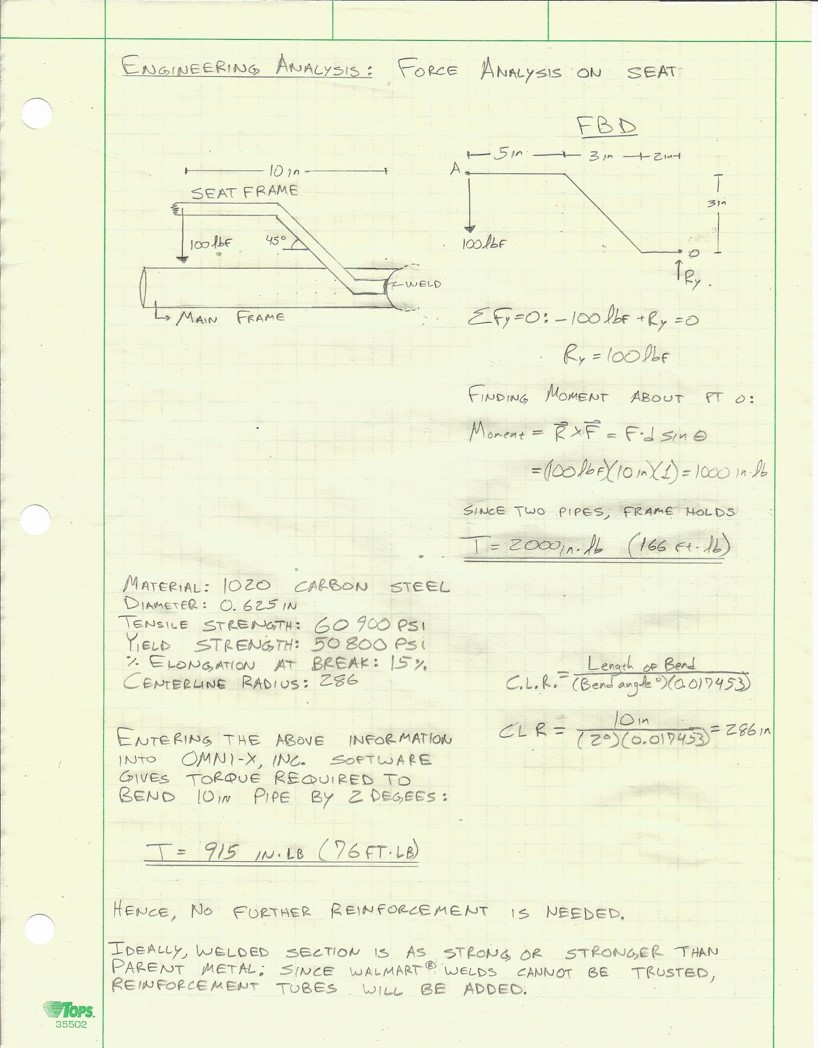 ENGINEERING ANALYSIS: FORCE ANALYSIS ON SEAT
FBD
10 in
SEAT FRAME
100 lbF
45°
WELD
MAIN FRAME
5 in 3 in 2 in
A
3 in
100 lbF
O
Ry.
ΣFy=0: -100 lbF + Ry = 0
Ry = 100 lbF
FINDING MOMENT ABOUT PT O:
Moment = R⃗ × F⃗ = F·d sin θ
= (100 lbF)(10 in)(1) = 1000 in·lb
SINCE TWO PIPES, FRAME HOLDS
T = 2000 in·lb (166 ft·lb)
MATERIAL: 1020 CARBON STEEL
DIAMETER: 0.625 IN
TENSILE STRENGTH: 60 900 PSI
YIELD STRENGTH: 50 800 PSI
% ELONGATION AT BREAK: 15%
CENTERLINE RADIUS: 286
C.L.R. = Length of Bend / (Bend angle°)(0.017453)
CLR = 10 in / (2°)(0.017453) = 286 in
ENTERING THE ABOVE INFORMATION
INTO OMNI-X, INC. SOFTWARE
GIVES TORQUE REQUIRED TO
BEND 10 in PIPE BY 2 DEGEES:
T = 915 IN·LB (76 FT·LB)
HENCE, NO FURTHER REINFORCEMENT IS NEEDED.
IDEALLY, WELDED SECTION IS AS STRONG OR STRONGER THAN
PARENT METAL; SINCE WALMART® WELDS CANNOT BE TRUSTED,
REINFORCEMENT TUBES WILL BE ADDED.
TOPS.
35502